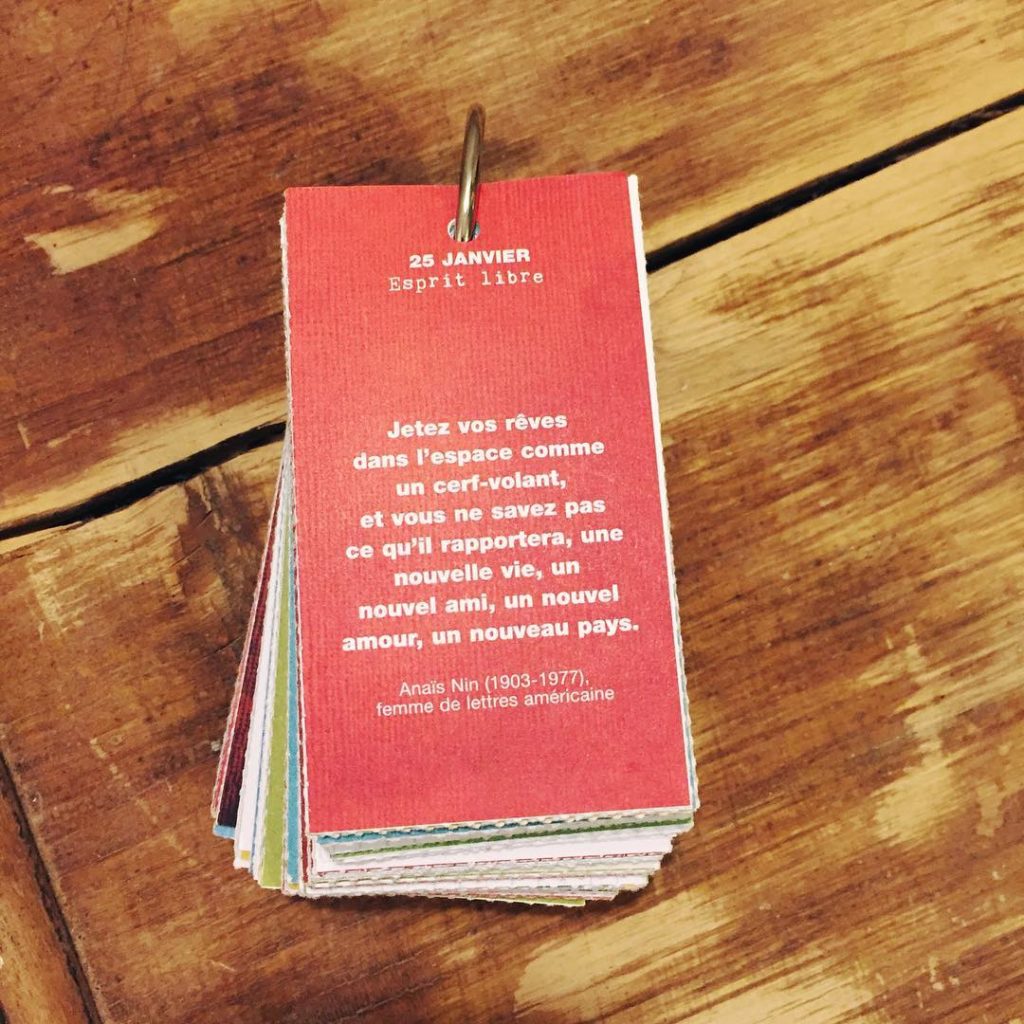 25 JANVIER
Esprit libre
Jetez vos rêves
dans l'espace comme
un cerf-volant,
et vous ne savez pas
ce qu'il rapportera, une
nouvelle vie, un
nouvel ami, un nouvel
amour, un nouveau pays.
Anaïs Nin (1903-1977),
femme de lettres américaine